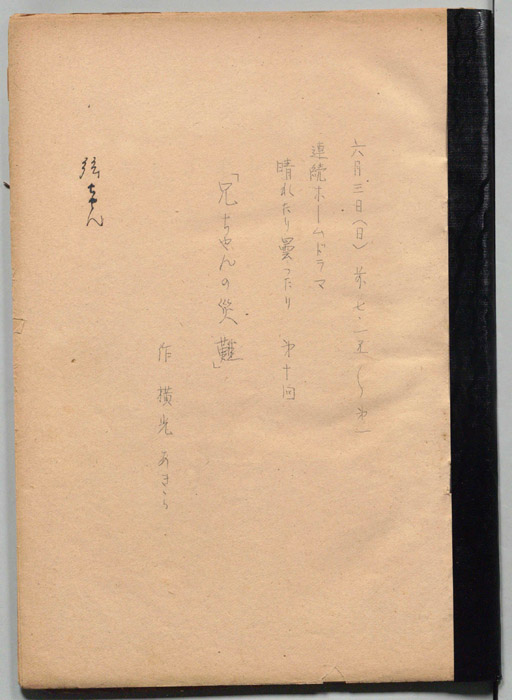 六月三日(日) 前七・一五〜 第一
連続ホームドラマ
晴れたり曇ったり 第十回
「兄ちゃんの災難」
作 横光 あきら
ちゃん